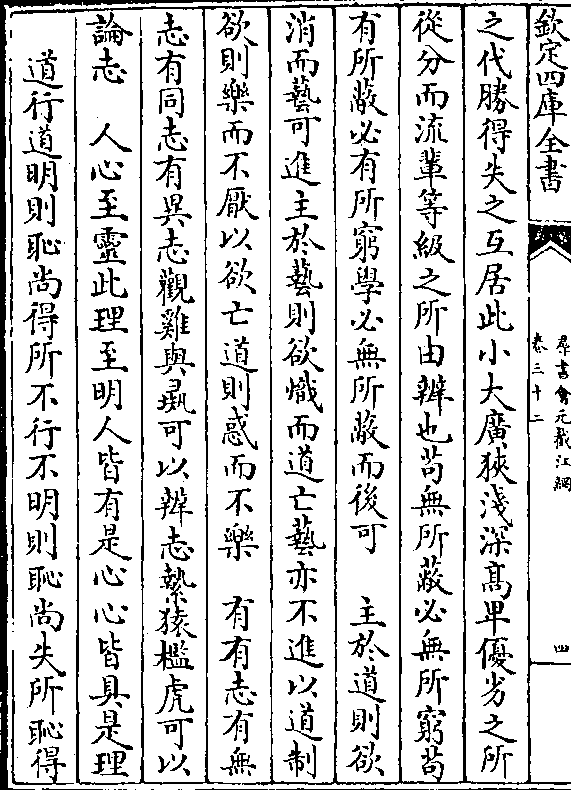 欽定四庫全書
羣書會元截江網
卷三十二
四
之代勝得失之互居此小大廣狹淺深高卑優劣之所
從分而流輩等級之所由辨也苟無所蔽必無所窮苟
有所蔽必有所窮學必無所蔽而後可　主於道則欲
消而藝可進主於藝則欲熾而道亡藝亦不進以道制
欲則樂而不厭以欲亡道則惑而不樂　有有志有無
志有同志有異志觀雞與彘可以辨志縶猿檻虎可以
論志　人心至靈此理至明人皆有是心心皆具是理
道行道明則恥尚得所不行不明則恥尚失所恥得